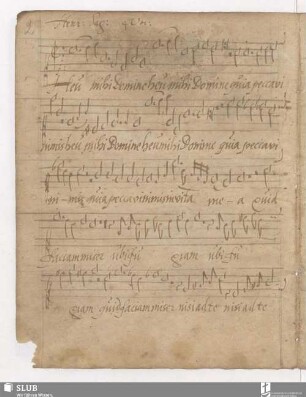 Heu mihi domine heu mihi domine quia peccavi
nimis heu mihi domine heu mihi domine quia peccavi
ni-mis quia peccavi nimis in vita me-a quid
faciam miser ubi fu giam ubi fu
giam quid faciam miser nisi ad te nisi ad te
SLUB
Wir führen Wissen.